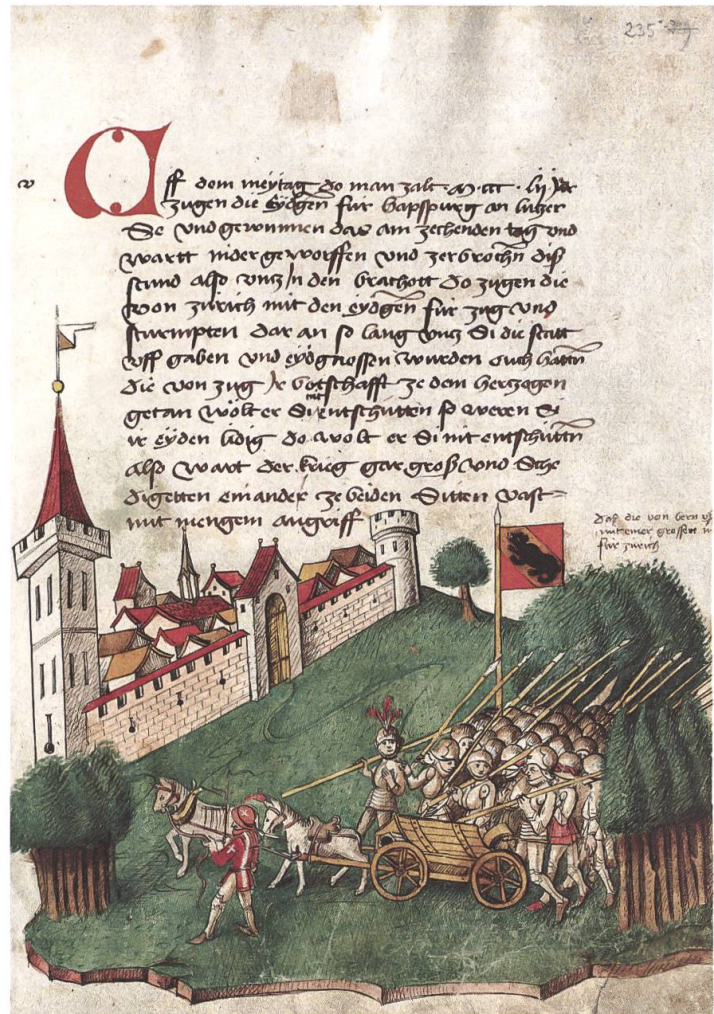 235
Uff dom meÿtag do man zalt · m · ccc · lij Jar
zugen die eÿdgen für hapspurg an lutzer
Se Und gewunnen daz am zechenden tag und
wartt nider geworffen und zerbrochn diß
stund also untz In den brachott do zugen die
von zürich mit den eÿdgen für zug und
sturmpten dar an so lang untz Si die statt
uff gaben und eÿdgnossen wurden ouch hattn
die von zug Ir botschafft ze dem hertzogen
getan wolt er Si nit entschütten so weren Si
ir eÿden ladig do wolt er Si nit entschüttn
also wart der krieg gar groß und Sche
digetten ein ander ze beiden Sitten vast
mit mengem angriff
Daß die von bern
mit einer grossen
für zürich